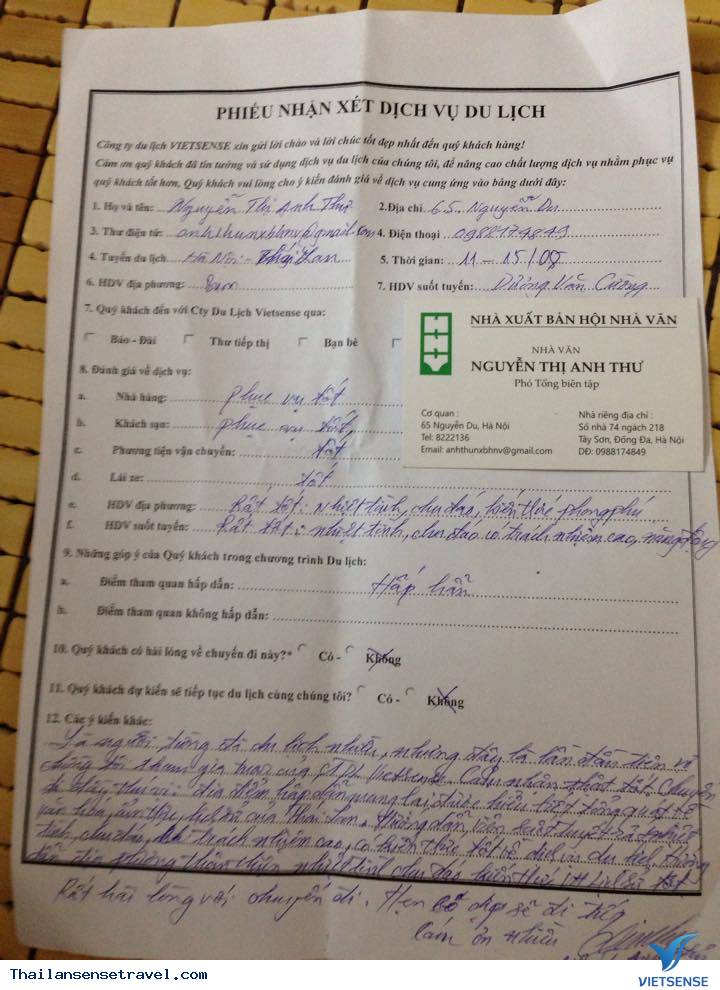 PHIẾU NHẬN XÉT DỊCH VỤ DU LỊCH
Công ty du lịch VIETSENSE xin gửi lời chào và lời chúc tốt đẹp nhất đến quý khách hàng!
Cám ơn quý khách đã tin tưởng và sử dụng dịch vụ du lịch của chúng tôi, để nâng cao chất lượng dịch vụ nhằm phục vụ
quý khách tốt hơn, Quý khách vui lòng cho ý kiến đánh giá về dịch vụ cung ứng vào bảng dưới đây:
1. Họ và tên: Nguyễn Thị Anh Thư 2.Địa chỉ 65 Nguyễn Du
3. Thư điện tử: anhthunxbhnv@gmail.com 4. Điện thoại 0988174849
4. Tuyến du lịch Hà Nội - Thái Lan 5. Thời gian: 11 - 15/08
6. HDV địa phương: 7. HDV suốt tuyến: Dương Văn Cường
7. Quý khách đến với Cty Du Lịch Vietsense qua:
Báo - Đài Thư tiếp thị Bạn bè
NHÀ XUẤT BẢN HỘI NHÀ VĂN
NHÀ VĂN
NGUYỄN THỊ ANH THƯ
Phó Tổng biên tập
Cơ quan :
65 Nguyễn Du, Hà Nội
Tel: 8222136
Email: anhthunxbhnv@gmail.com
Nhà riêng địa chỉ :
Số nhà 74 ngách 218
Tây Sơn, Đống Đa, Hà Nội
DĐ: 0988174849
8. Đánh giá về dịch vụ:
a. Nhà hàng: phục vụ tốt
b. Khách sạn: phục vụ tốt
c. Phương tiện vận chuyển: tốt
d. Lái xe: tốt
e. HDV địa phương: Rất tốt: nhiệt tình, chu đáo, kiến thức phong phú
f. HDV suốt tuyến: Rất tốt: nhiệt tình, chu đáo có trách nhiệm cao, năng động
9. Những góp ý của Quý khách trong chương trình Du lịch:
a. Điểm tham quan hấp dẫn: Hấp dẫn
b. Điểm tham quan không hấp dẫn:
10. Quý khách có hài lòng về chuyến đi này?* Có - Không
11. Quý khách dự kiến sẽ tiếp tục du lịch cùng chúng tôi? Có - Không
12. Các ý kiến khác:
Là người từng đi du lịch nhiều, nhưng đây là lần đầu tiên
chúng tôi tham gia tour của CTDL Vietsense. Cảm nhận thật tốt. Chuyến
đi đầy thú vị: địa điểm hấp dẫn mang lại được hiểu biết tổng quát về
văn hóa, ẩm thực, lịch sử của Thái Lan. Hướng dẫn viên suốt tuyến rất nhiệt
tình, chu đáo, trách nhiệm cao, có kiến thức tốt về dịch vụ du lịch. Hướng
dẫn địa phương thân thiện nhiệt tình chu đáo kiến thức tốt
Rất hài lòng với chuyến đi. Hẹn có dịp sẽ đi tiếp
Cám ơn nhiều
Thailansensetravel.com
VIETSENSE